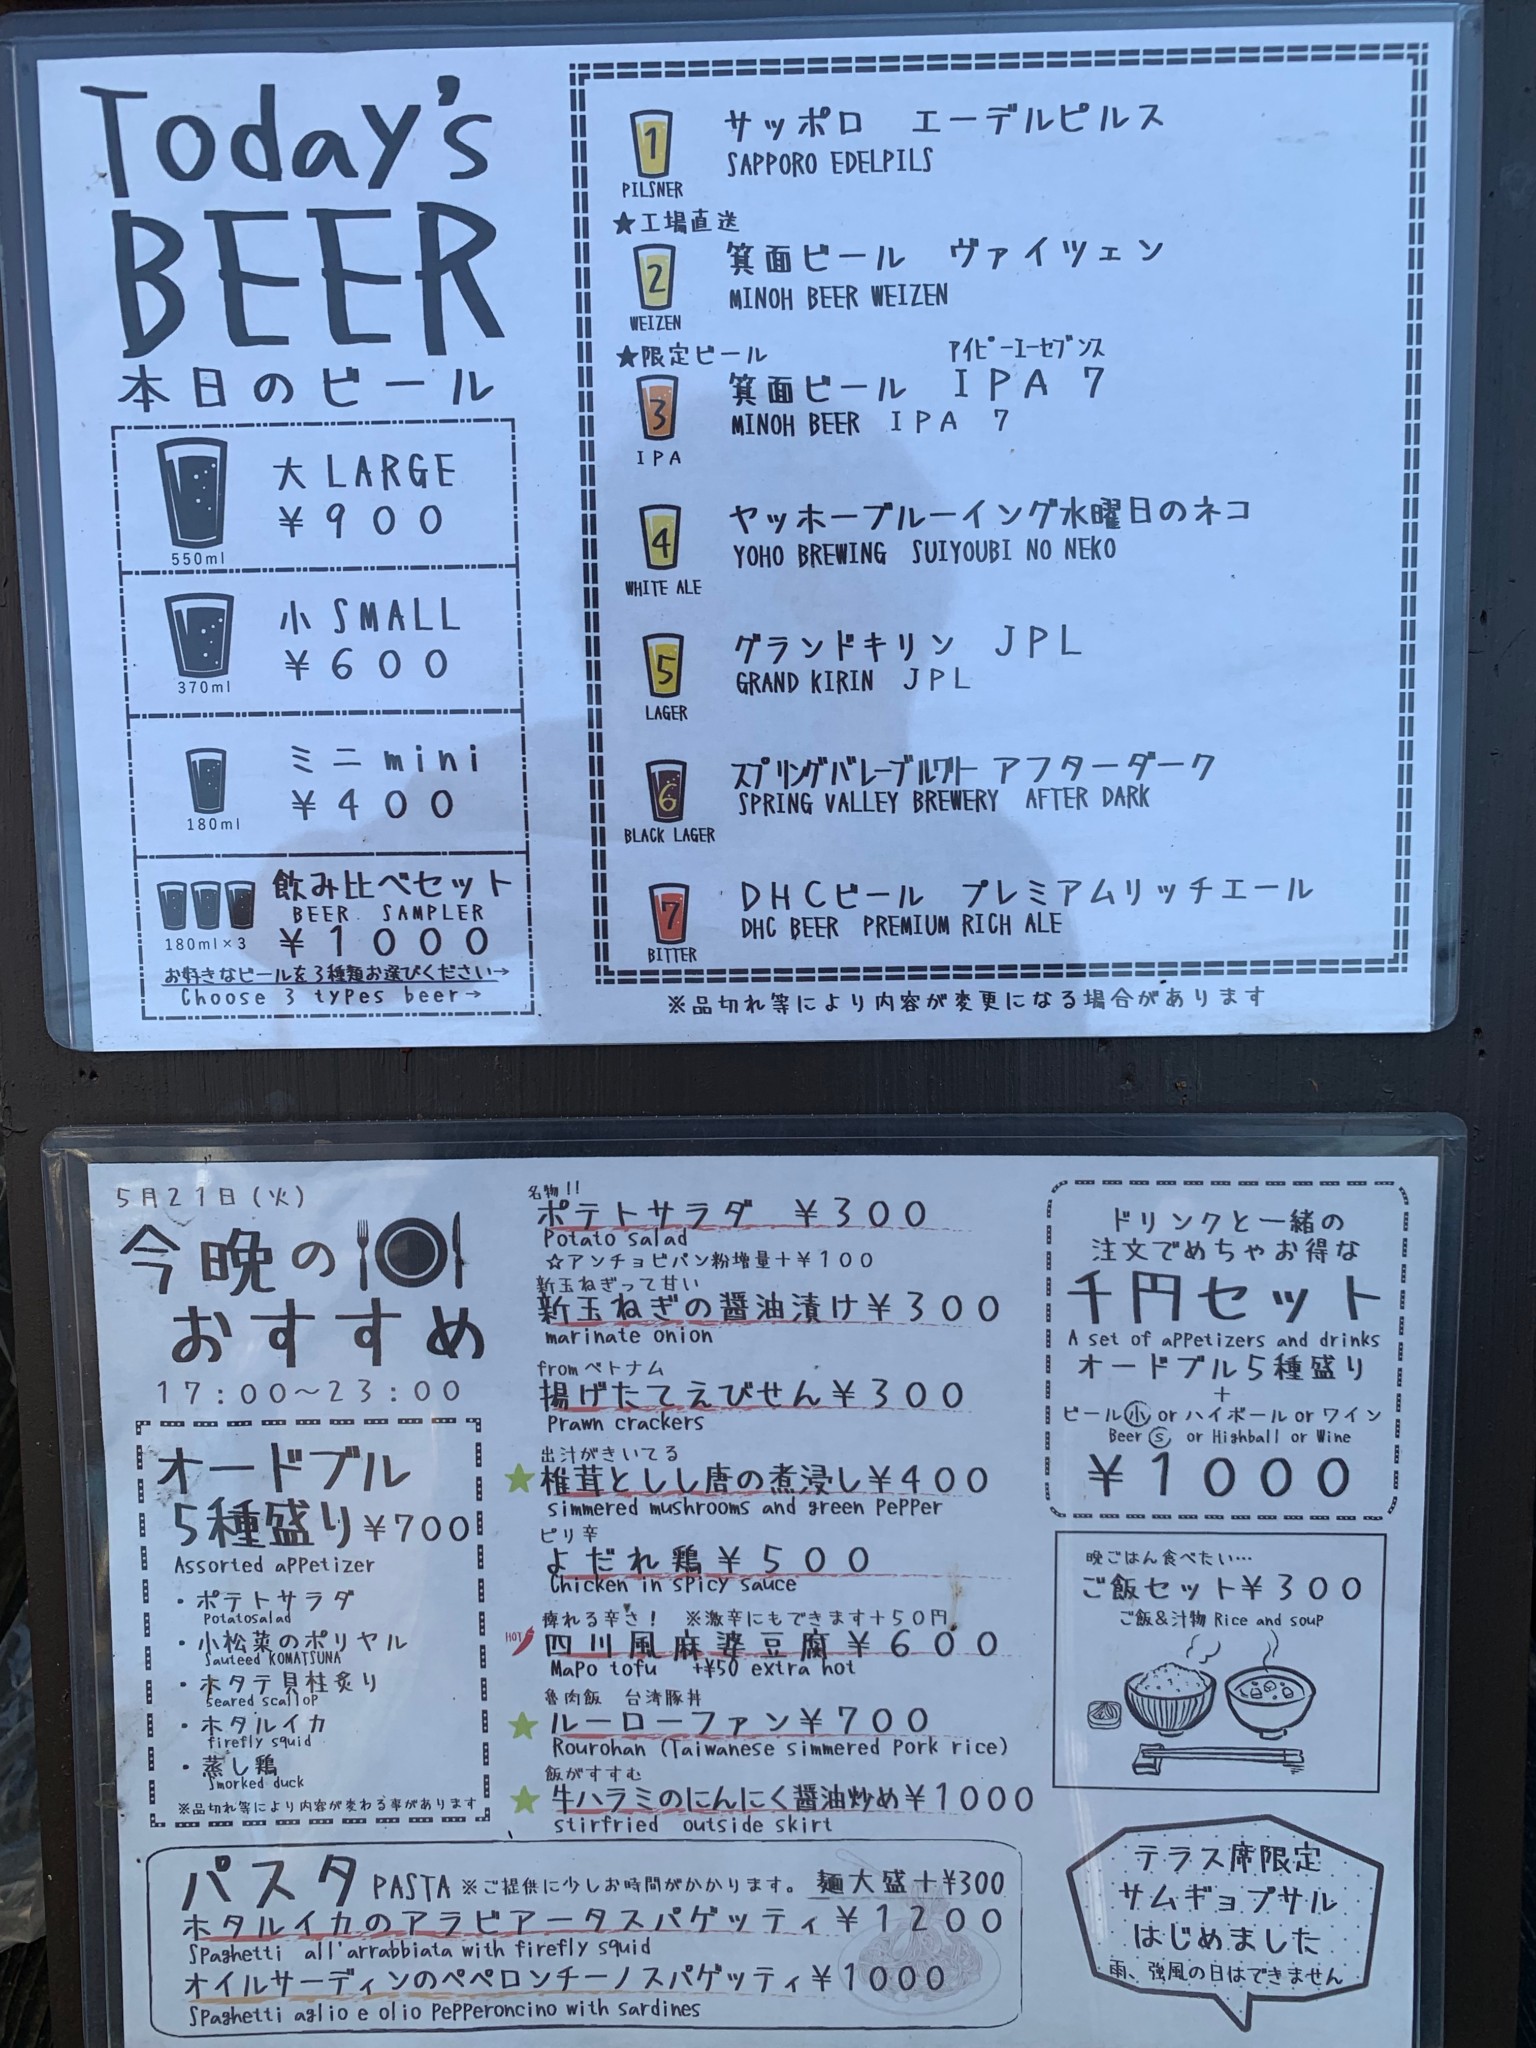 Today's
BEER
本日のビール
大 LARGE
¥900
550ml
小 SMALL
¥600
370ml
ミニ mini
¥400
180ml
飲み比べセット
BEER SAMPLER
180ml×3
¥1000
お好きなビールを3種類お選びください→
Choose 3 types beer→
1
PILSNER
サッポロ エーデルピルス
SAPPORO EDELPILS
★工場直送
2
WEIZEN
箕面ビール ヴァイツェン
MINOH BEER WEIZEN
★限定ビール
アイピーエーセブンス
3
IPA
箕面ビール IPA 7
MINOH BEER IPA 7
4
WHITE ALE
ヤッホーブルーイング水曜日のネコ
YOHO BREWING SUIYOUBI NO NEKO
5
LAGER
グランドキリン JPL
GRAND KIRIN JPL
6
BLACK LAGER
スプリングバレーブルワリー アフターダーク
SPRING VALLEY BREWERY AFTER DARK
7
BITTER
DHCビール プレミアムリッチエール
DHC BEER PREMIUM RICH ALE
※品切れ等により内容が変更になる場合があります
5月21日(火)
今晩の
おすすめ
17:00～23:00
オードブル
5種盛り¥700
Assorted appetizer
・ポテトサラダ
Potatosalad
・小松菜のポリヤル
Sauteed KOMATSUNA
・ホタテ貝柱炙り
seared scallop
・ホタルイカ
firefly squid
・蒸し鶏
Smorked duck
※品切れ等により内容が変わる事があります
名物!!
ポテトサラダ ¥300
Potato salad
☆アンチョビパン粉増量+¥100
新玉ねぎって甘い
新玉ねぎの醤油漬け¥300
marinate onion
fromベトナム
揚げたてえびせん¥300
Prawn crackers
出汁がきいてる
★椎茸としし唐の煮浸し¥400
simmered mushrooms and green pepper
ピリ辛
よだれ鶏¥500
Chicken in spicy sauce
痺れる辛さ! ※激辛にもできます+50円
HOT 四川風麻婆豆腐¥600
Mapo tofu +¥50 extra hot
魯肉飯 台湾豚丼
★ルーローファン¥700
Rourohan (Taiwanese simmered pork rice)
飯がすすむ
★牛ハラミのにんにく醤油炒め¥1000
stirfried outside skirt
パスタ PASTA ※ご提供に少しお時間がかかります。 麺大盛+¥300
ホタルイカのアラビアータスパゲッティ¥1200
Spaghetti all'arrabbiata with firefly squid
オイルサーディンのペペロンチーノスパゲッティ¥1000
Spaghetti aglio e olio pepperoncino with sardines
ドリンクと一緒の
注文でめちゃお得な
千円セット
A set of appetizers and drinks
オードブル5種盛り
+
ビール㊙小 or ハイボール or ワイン
Beer Ⓢ or Highball or Wine
¥1000
晩ごはん食べたい…
ご飯セット¥300
ご飯&汁物 Rice and soup
テラス席限定
サムギョプサル
はじめました
雨、強風の日はできません